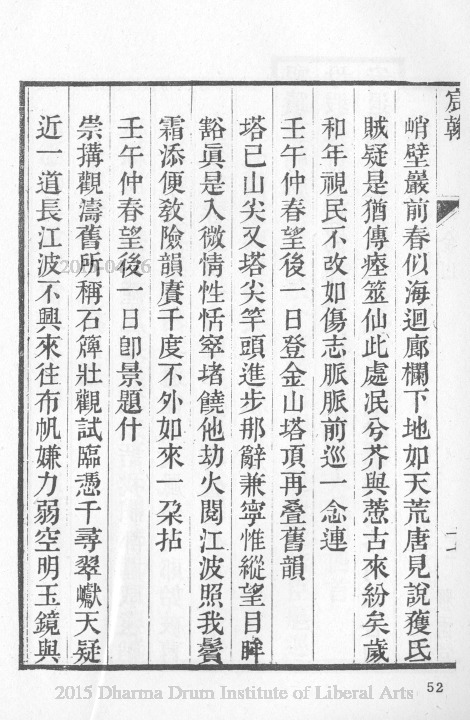 宸翰
峭壁巖前春似海迴廊欄下地如天荒唐見說獲氏
賊疑是猶傳瘞筮仙此處泯兮芥與蔕古來紛矣歲
和年視民不改如傷志脈脈前巡一念連
壬午仲春望後一日登金山塔頂再疊舊韻
塔已山尖又塔尖竿頭進步那辭兼寧惟縱望目眸
豁眞是入微情性恬窣堵饒他劫火閱江波照我鬢
霜添便敎險韻賡千度不外如來一朶拈
壬午仲春望後一日卽景題什
崇搆觀濤舊所稱石簰壯觀試臨憑千尋翠巘天疑
近一道長江波不興來往布帆嫌力弱空明玉鏡與
52
2015 Dharma Drum Institute of Liberal Arts